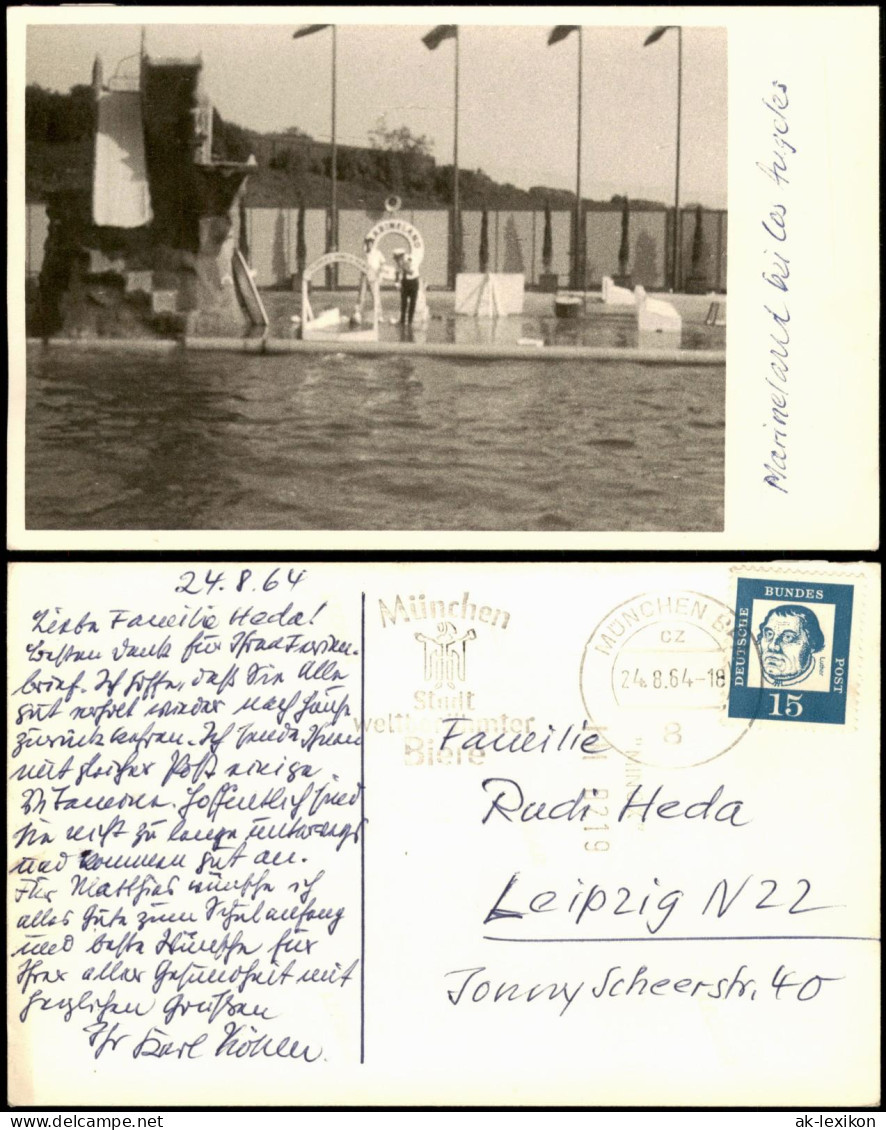 MARINELAND
Marineland bei Los Angeles
24.8.64
Liebe Familie Heda!
Besten Dank für Ihren Ferien-
brief. Ich hoffe, daß Sie alle
gut erholt wieder nach Hause
zurückkehren. Ich sende Ihnen
mit gleicher Post einige
Vitaminen. Hoffentlich sind
sie nicht zu lange unterwegs
und kommen gut an.
Für Matthias wünsche ich
alles Gute zum Schulanfang
und beste Wünsche für
Ihrer aller Gesundheit mit
herzlichen Grüßen
Ihr Karl
München
Stadt
weltberühmter
Biere
MÜNCHEN
CZ
24.8.64-18
8
DEUTSCHE BUNDES POST
Luther
15
HM 8219
Familie
Rudi Heda
Leipzig N22
Jonny Scheerstr. 40
ak-lexikon